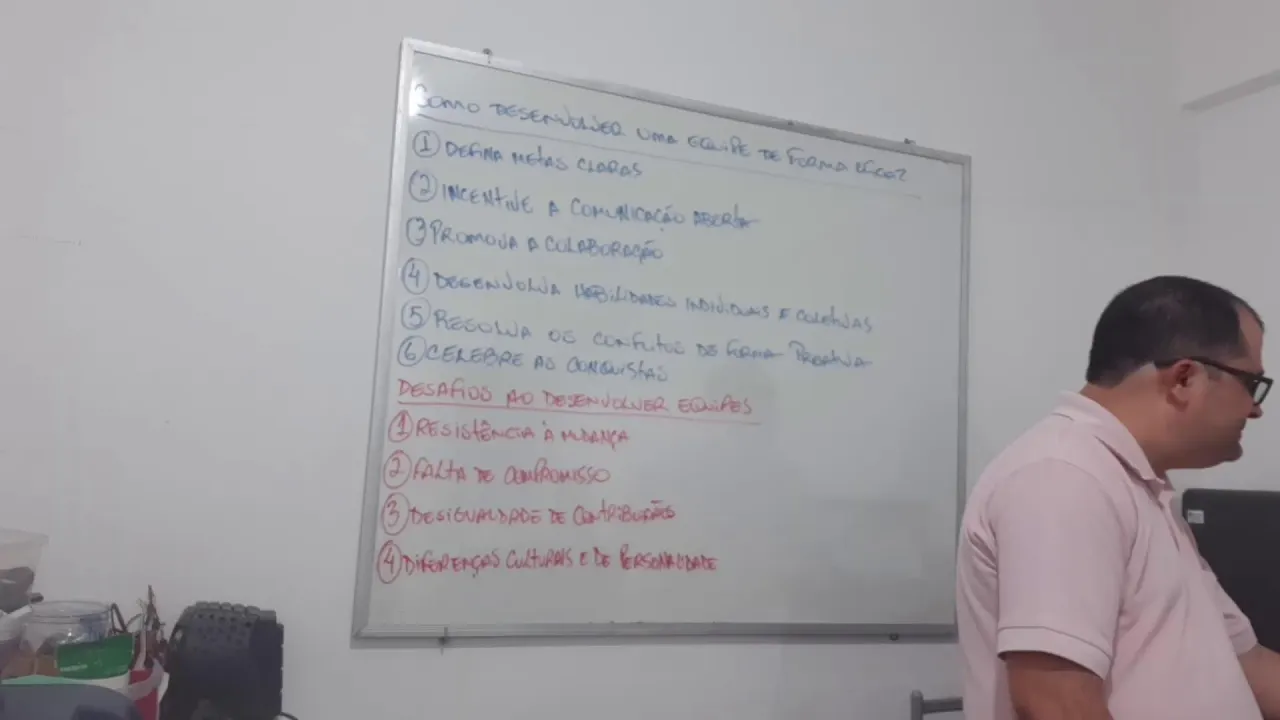 COMO DESENVOLVER UMA EQUIPE DE FORMA EFICAZ?
① DEFINA METAS CLARAS
② INCENTIVE A COMUNICAÇÃO ABERTA
③ PROMOVA A COLABORAÇÃO
④ DESENVOLVA HABILIDADES INDIVIDUAIS E COLETIVAS
⑤ RESOLVA OS CONFLITOS DE FORMA PROATIVA
⑥ CELEBRE AS CONQUISTAS
DESAFIOS AO DESENVOLVER EQUIPES
① RESISTÊNCIA À MUDANÇA
② FALTA DE COMPROMISSO
③ DESIGUALDADE DE CONTRIBUIÇÕES
④ DIFERENÇAS CULTURAIS E DE PERSONALIDADE